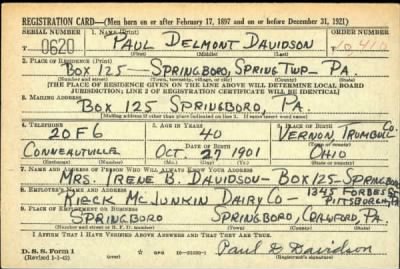 REGISTRATION CARD—(Men born on or after February 17, 1897 and on or before December 31, 1921)
SERIAL NUMBER 1. NAME (Print) ORDER NUMBER
U 0620 PAUL DELMONT DAVIDSON 10,410
(First) (Middle) (Last)
2. PLACE OF RESIDENCE (Print)
BOX 125 — SPRINGBORO, SPRING TWP — PA.
(Number and street) (Town, township, village, or city) (County) (State)
[THE PLACE OF RESIDENCE GIVEN ON THE LINE ABOVE WILL DETERMINE LOCAL BOARD
JURISDICTION; LINE 2 OF REGISTRATION CERTIFICATE WILL BE IDENTICAL]
3. MAILING ADDRESS
BOX 125 SPRINGBORO, PA.
[Mailing address if other than place indicated on line 2. If same insert word same]
4. TELEPHONE 5. AGE IN YEARS 6. PLACE OF BIRTH
20F6 40 VERNON, TRUMBULL CO.
DATE OF BIRTH (Town or county)
CONNEAUTVILLE OCT. 27 1901 OHIO
(Exchange) (Number) (Mo.) (Day) (Yr.) (State or country)
7. NAME AND ADDRESS OF PERSON WHO WILL ALWAYS KNOW YOUR ADDRESS
MRS. IRENE B. DAVIDSON — BOX 125 — SPRINGBORO
8. EMPLOYER'S NAME AND ADDRESS 1345 FORBES ST
RIECK MCJUNKIN DAIRY CO — PITTSBURGH, PA.
9. PLACE OF EMPLOYMENT OR BUSINESS
SPRINGBORO SPRINGBORO, CRAWFORD, PA.
(Number and street or R. F. D. number) (Town) (County) (State)
I AFFIRM THAT I HAVE VERIFIED ABOVE ANSWERS AND THAT THEY ARE TRUE.
D. S. S. Form 1
(Revised 1-1-42) (over) Paul D Davidson
(Registrant's signature)